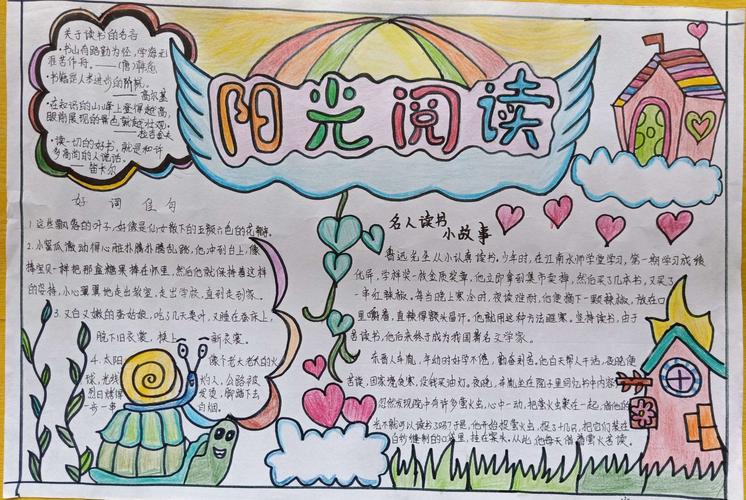 阳光阅读
关于读书的名言
·书山有路勤为径,学海无
涯苦作舟。——(唐)韩愈
·书籍是人类进步的阶梯。
——高尔基
·在知识的山峰上登得越高,
眼前展现的景色就越壮观。
——拉吉舍夫
·读一切的好书,就是和许
多高尚的人说话。
——笛卡尔
好词佳句
1.这些飘落的叶子,好像是仙女散下的五颜六色的花瓣。
2.小蜜瓜激动得心脏扑腾扑腾乱跳,他冲到台上,像
捧宝贝一样把那盒糖果捧在怀里,然后他就保持着这样
的姿势,小心翼翼地走出教室,走出学校,直到走到家。
3.又白又嫩的蚕姑娘,吃了几天桑叶,又睡在蚕床上,
脱下旧衣裳,换上一新衣裳。
4.太阳 像个老大老大的火
球,光线 灼人,公路被
烈日烤得 发烫,脚踏下去
一步一串 白烟。
名人读书
小故事
鲁迅先生从小认真读书。少年时,在江南水师学堂学习,第一期学习成绩
优异,学校奖一枚金质奖章,他立即拿到集市卖掉,然后买了几本书,又买了
一串红辣椒。每当晚上寒冷时,夜读难耐,他便摘下一颗辣椒,放在口
里嚼着,直辣得额头冒汗。他就用这种方法驱寒,坚持读书,由于
苦读书,他后来终于成为我国著名文学家。
东晋人车胤,年幼时好学不倦,勤奋刻苦。他白天帮人干活,夜晚便
苦读,因家境贫寒,没钱买油灯。夜晚,车胤坐在院子里回忆书中内容
忽然发现院中有许多萤火虫,心中一动,把萤火虫聚在一起,借他的
光不就可以读书了吗?于是,他开始捉萤火虫,捉了十几只,把它们装在
白纱缝制的口袋里,挂在案头。从此,他每天借着萤火苦读。